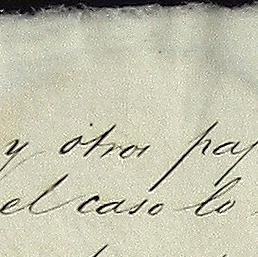 y otros pap
el caso lo